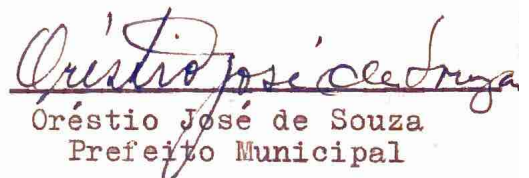 Oréstio José de Souza
Oréstio José de Souza
Prefeito Municipal